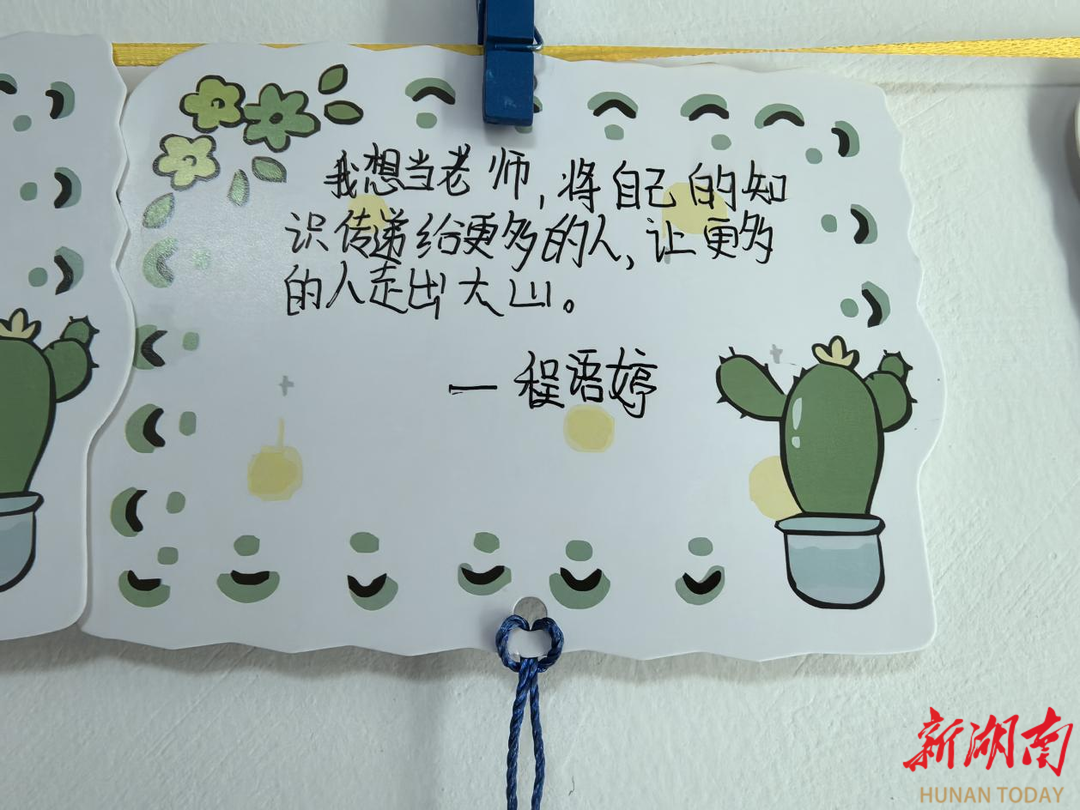 我想当老师，将自己的知
识传递给更多的人，让更多
的人走出大山。
— 程语婷
新湖南
HUNAN TODAY